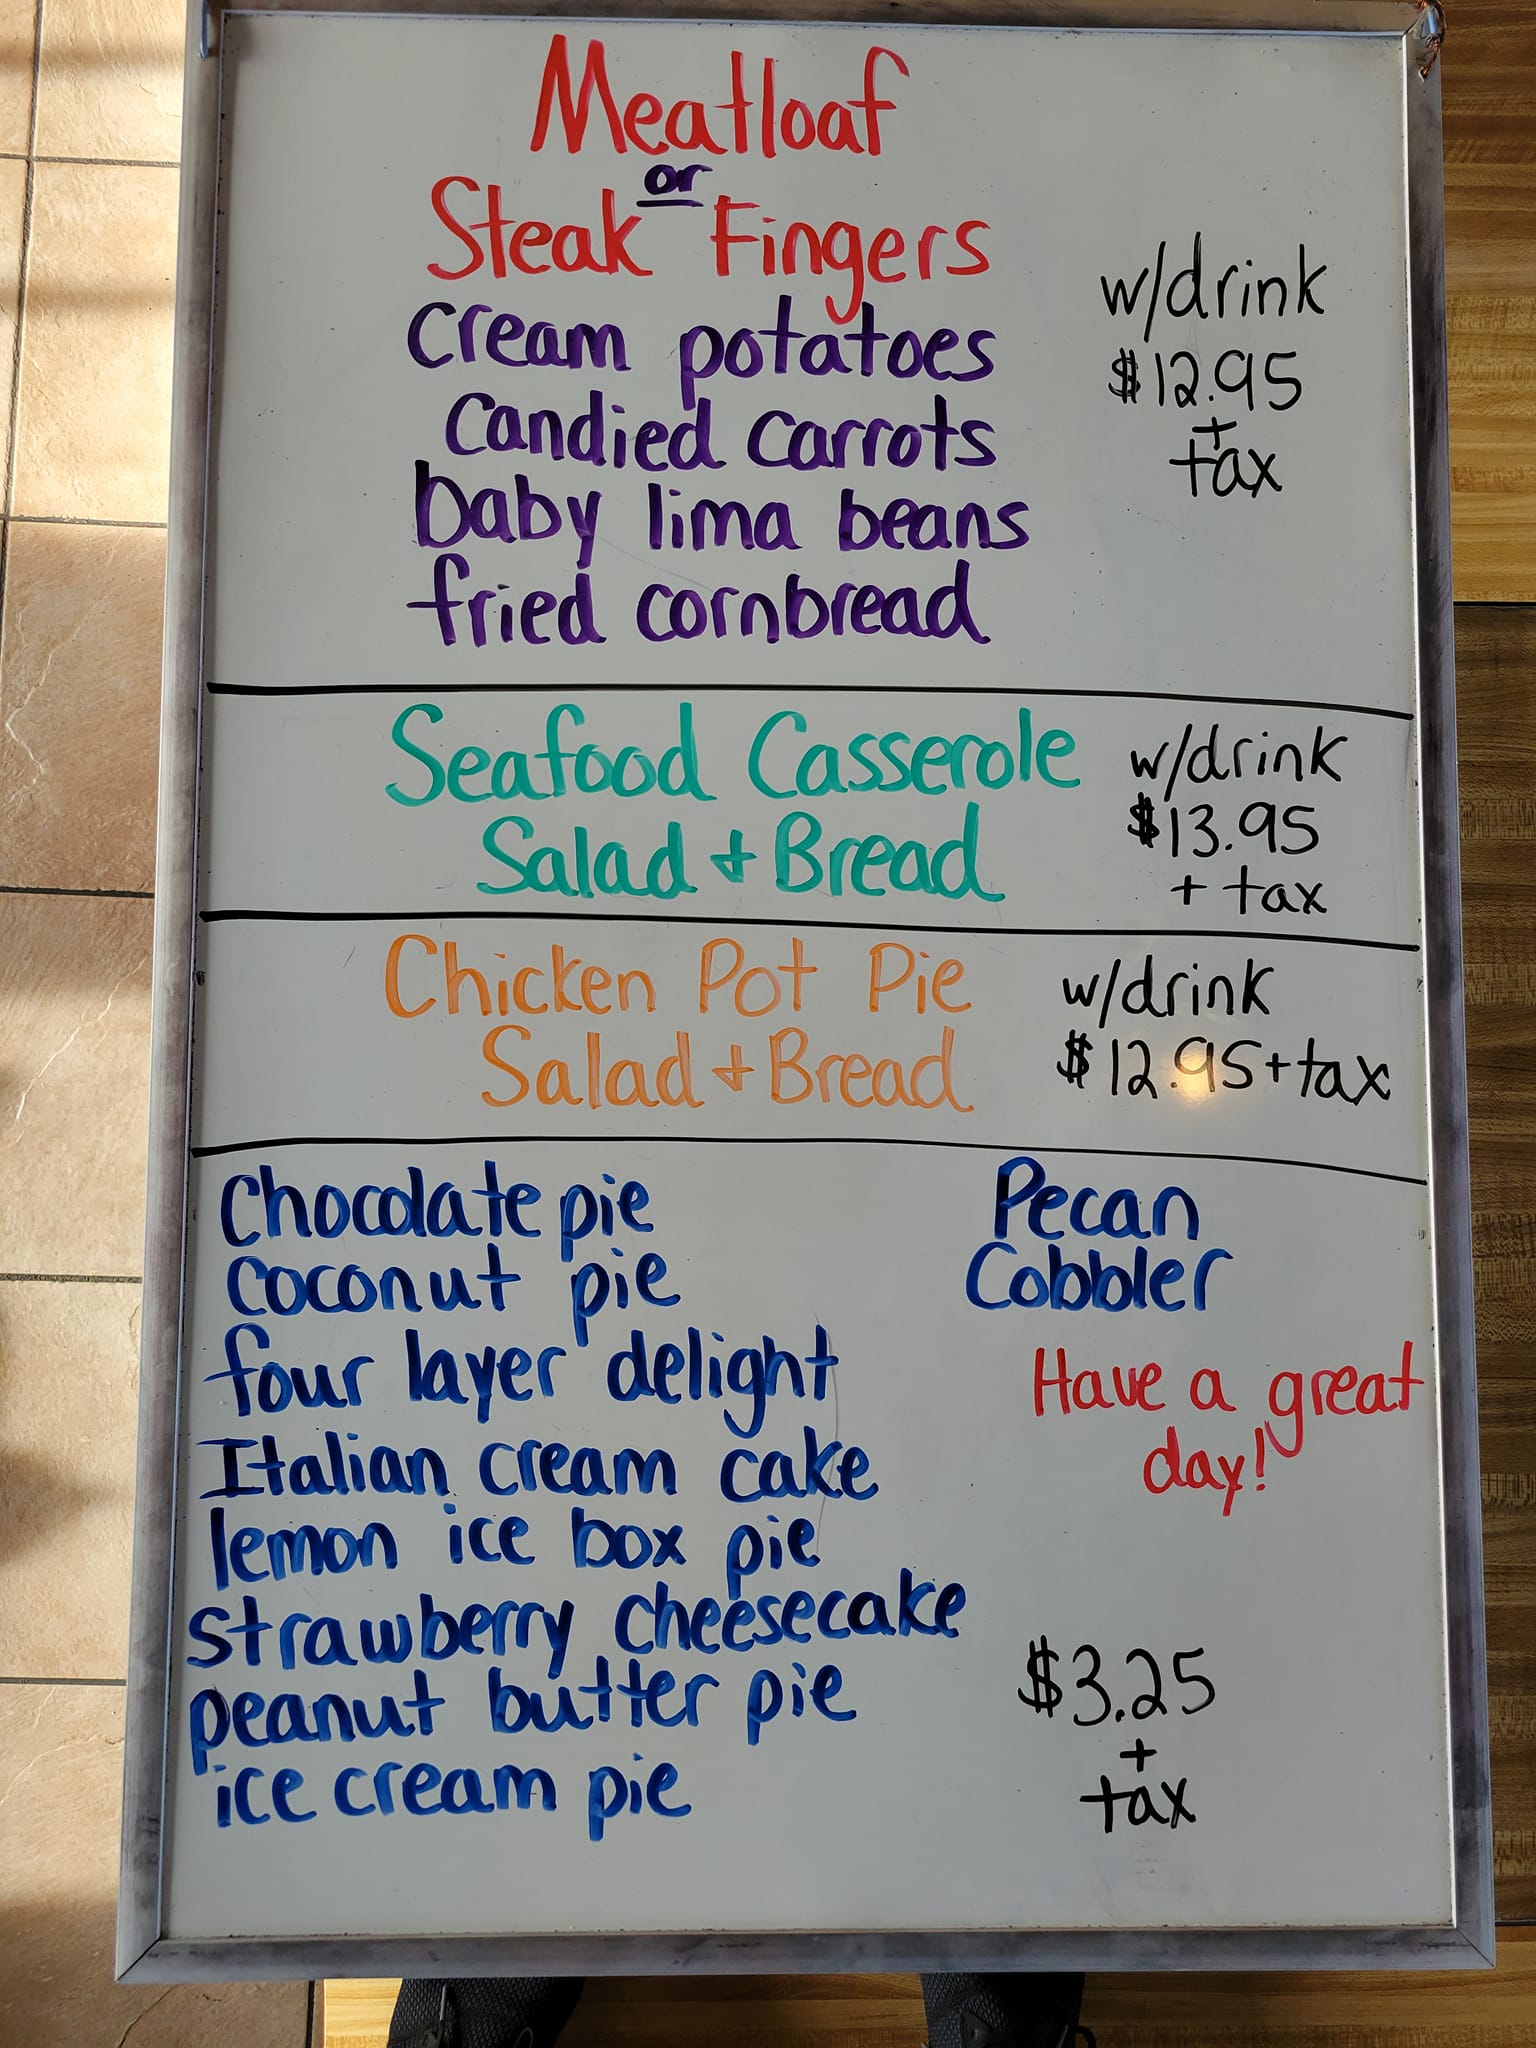 Meatloaf
or
Steak Fingers
cream potatoes
candied carrots
baby lima beans
fried cornbread
w/drink
$12.95
+
tax
Seafood Casserole
Salad + Bread
w/drink
$13.95
+ tax
Chicken Pot Pie
Salad + Bread
w/drink
$12.95+tax
Chocolate pie
coconut pie
four layer delight
Italian cream cake
lemon ice box pie
strawberry cheesecake
peanut butter pie
ice cream pie
Pecan
Cobbler
Have a great
day!
$3.25
+
tax